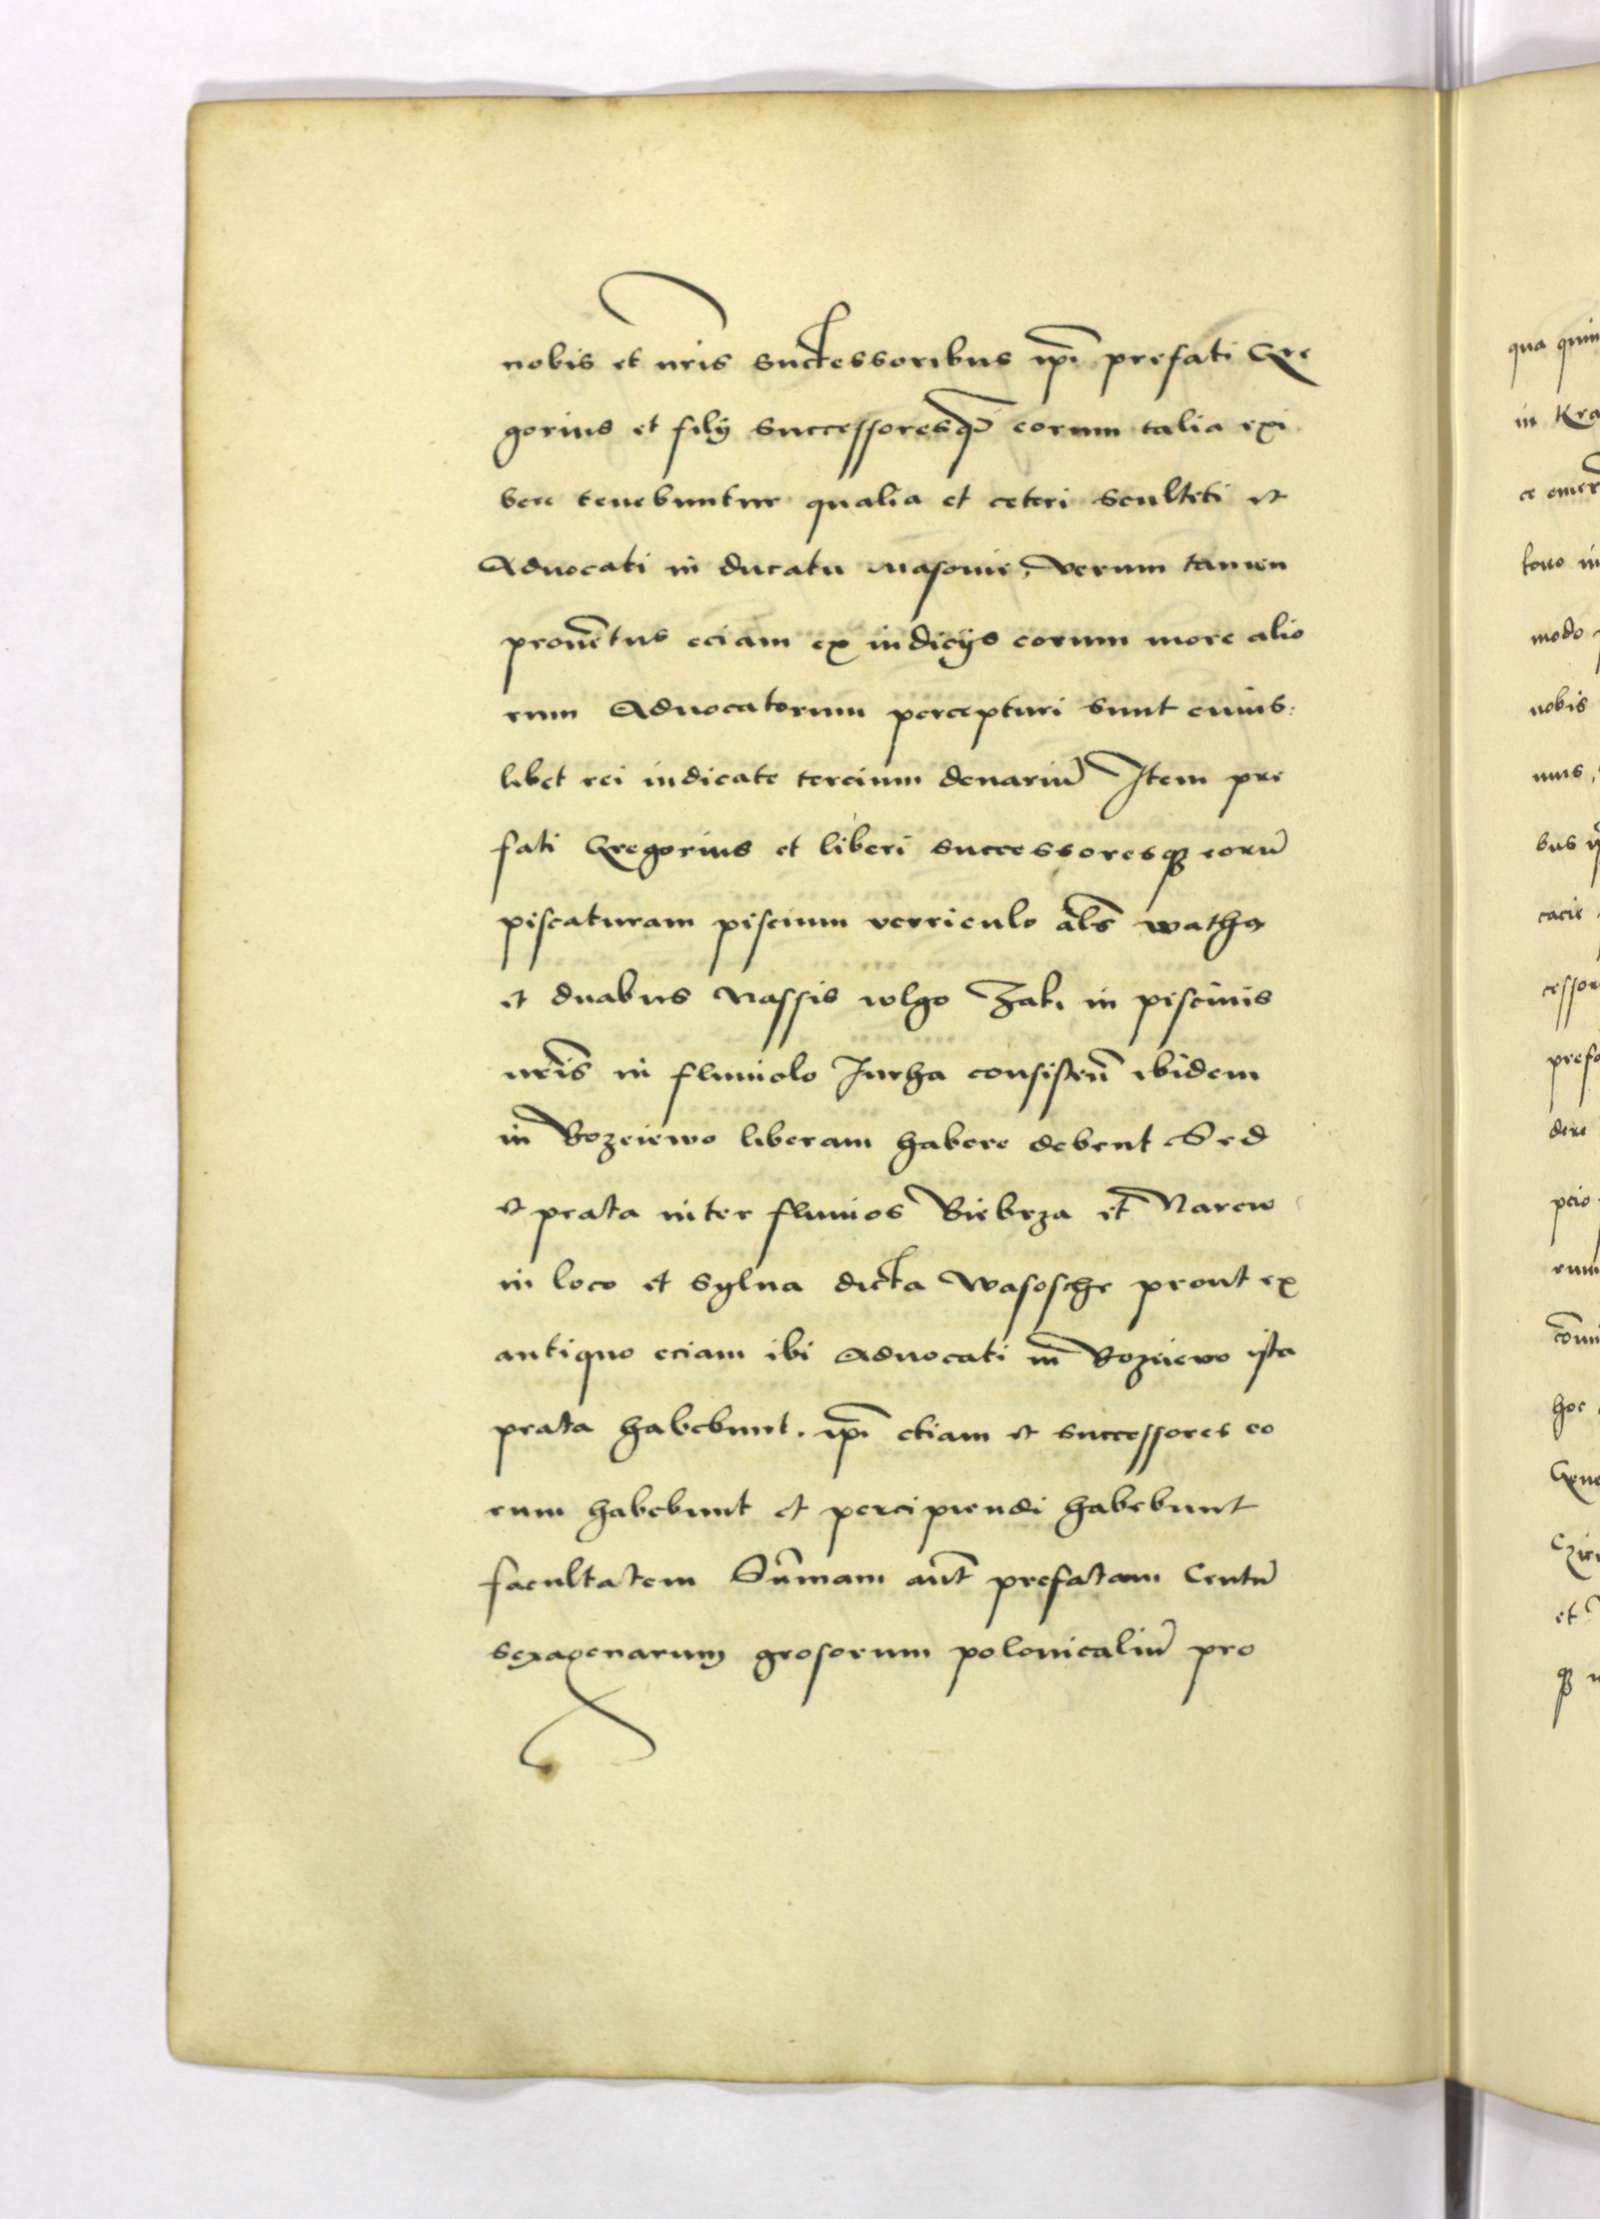 nobis et nris successoribus ipi prefati Gre
gorius et filij successoresq eorum talia exi
bere tenebuntur qualia et ceteri sculteti et
Advocati in ducatu Masovie, verum tamen
proventus eciam ex iudicijs eorum more alio
rum Advocatorum percepturi sunt cuius:
libet rei iudicate tercium denariu Item pre
fati Gregorius et liberi successoresq eoru
piscaturam piscium verriculo als watha
et duabus Nassis wlgo Zaki in piscinis
nris in fluviolo Jurha consisten ibidem
in Bozeiewo liberam habere debent Sed
et prata inter fluvios Biebrza et Narew
in loco et sylva dicta Wasosche prout ex
antiquo eciam ibi Advocati in Bozeiewo ista
prata habebunt. ipi etiam et successores eo
rum habebunt et percipiendi habebunt
facultatem Sumam aut prefatam Centu
sexagenarum grosorum polonicaliu pro
qua
in
modo
nobis
bus
hoc
et